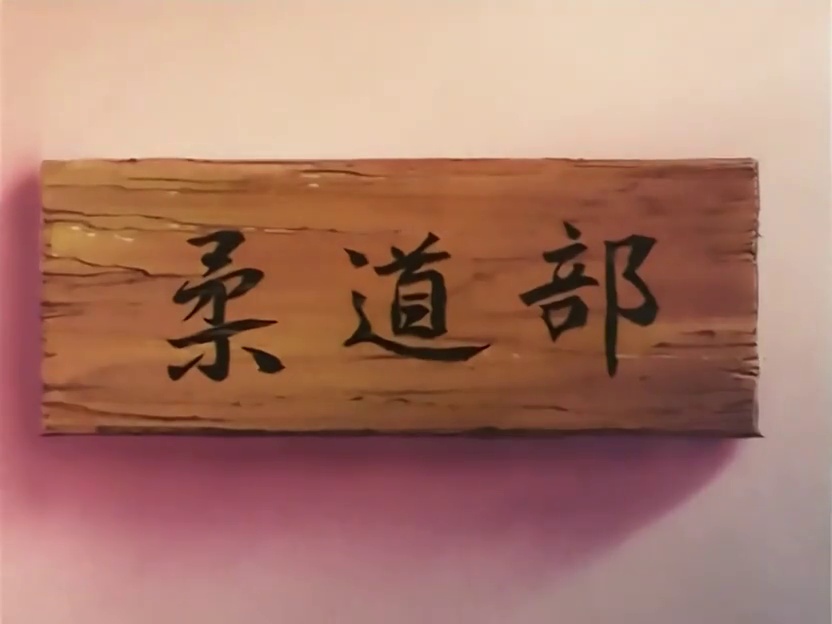 柔道部